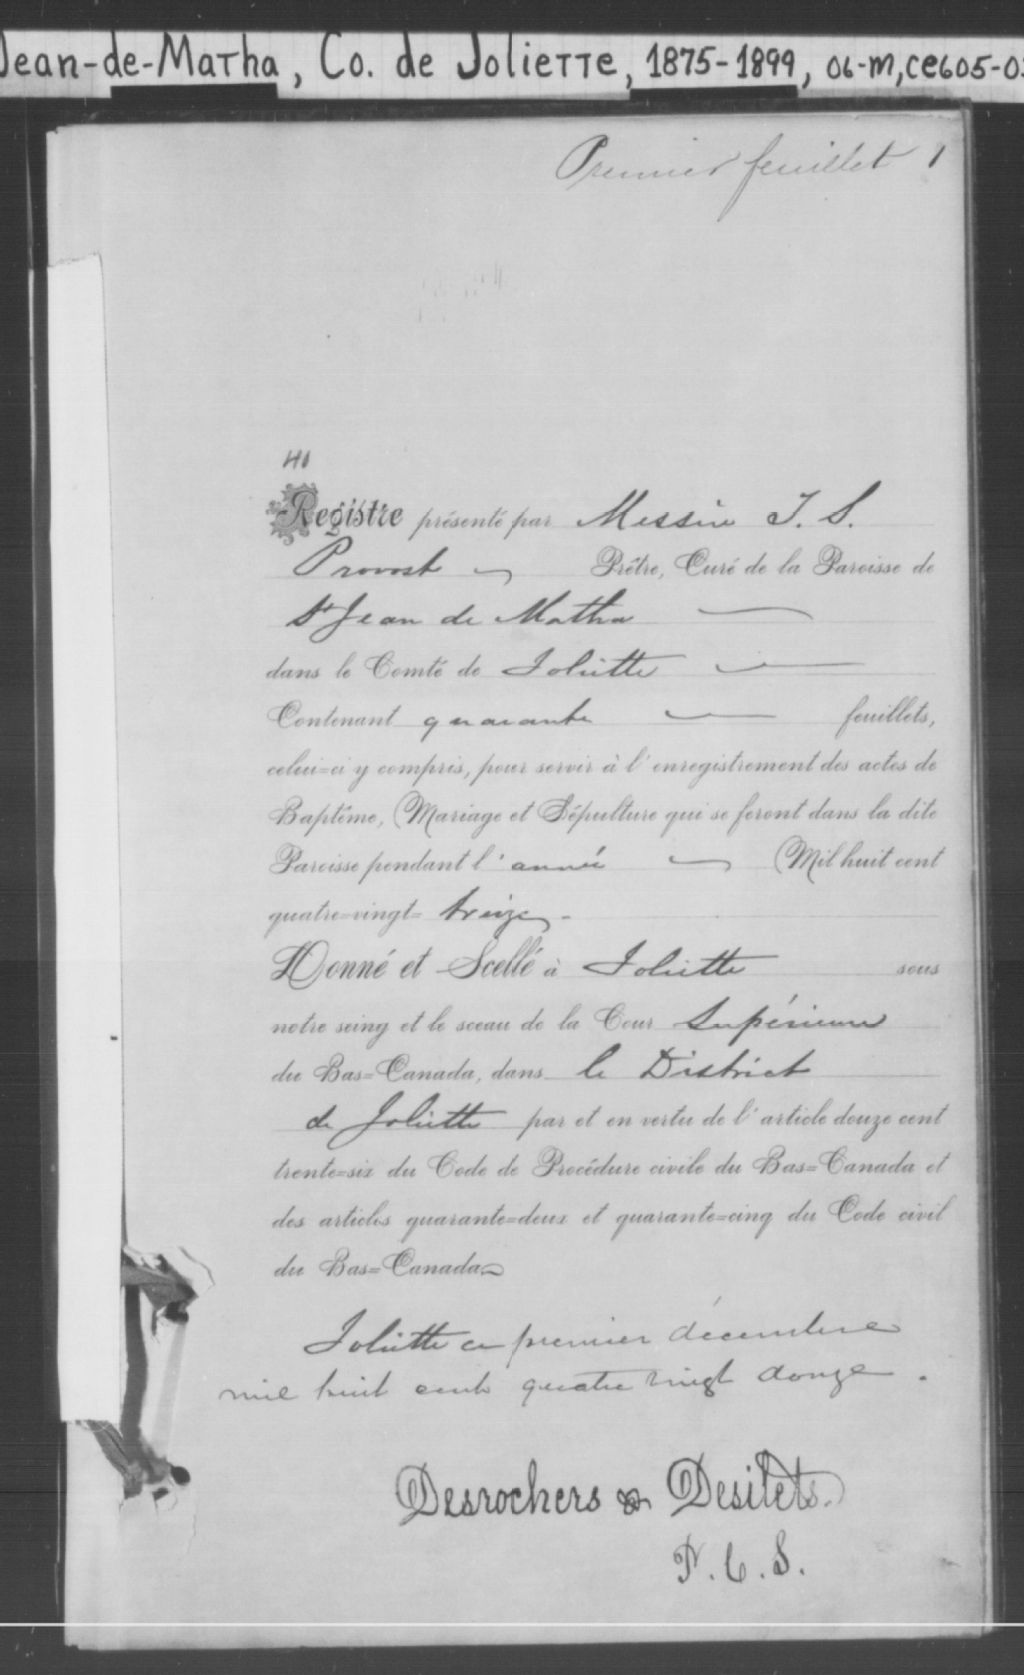 Jean-de-Matha, Co. de Joliette, 1875-1899, 06-M, CE605-03
Premier feuillet 1
40
Registre présenté par Messire T. S.
Provost Prêtre, Curé de la Paroisse de
St Jean de Matha
dans le Comté de Joliette
Contenant quarante feuillets,
celui=ci y compris, pour servir à l'enregistrement des actes de
Baptême, Mariage et Sépulture qui se feront dans la dite
Paroisse pendant l'année Mil huit cent
quatre=vingt= treize -
Donné et Scellé à Joliette sous
notre seing et le sceau de la Cour Supérieure
du Bas=Canada, dans le District
de Joliette par et en vertu de l'article douze cent
trente=six du Code de Procédure civile du Bas=Canada et
des articles quarante=deux et quarante=cinq du Code civil
du Bas=Canada
Joliette ce premier décembre
mil huit cent quatre vingt douze.
Desrochers & Desilets.
P. C. S.